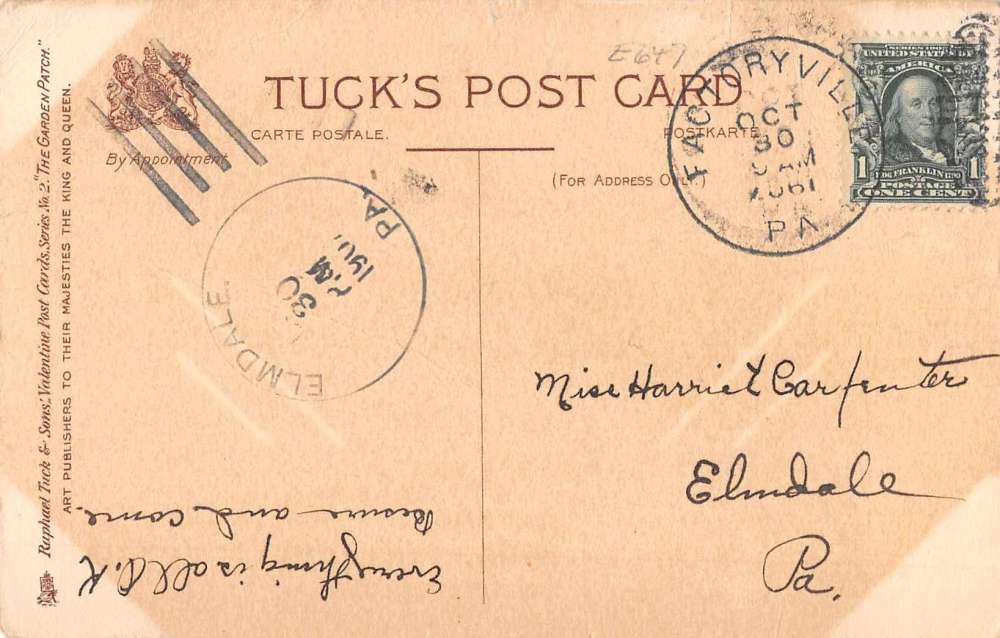 E647
TUCK'S POST CARD
CARTE POSTALE.
POSTKARTE
By Appointment
(FOR ADDRESS ONLY.)
FACTORYVILLE
OCT
30
AM
PA.
SERIES 1902
UNITED STATES OF
AMERICA
1 FRANKLIN 1
POSTAGE
ONE CENT
ELMDALE. PA.
30
190
Miss Harriet Carpenter
Elmdale
Pa.
Everything is all O.K
Besure and come.
Raphael Tuck & Sons' "Valentine" Post Cards, Series No. 2. "THE GARDEN PATCH."
ART PUBLISHERS TO THEIR MAJESTIES THE KING AND QUEEN.